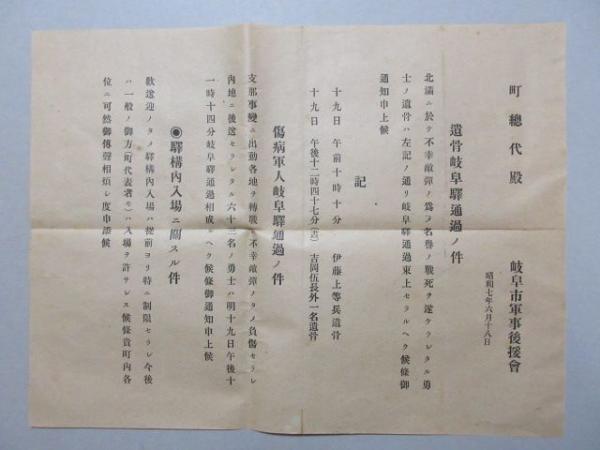 町總代殿
岐阜市軍事後援會
昭和七年六月十八日
遺骨岐阜驛通過ノ件
北滿ニ於テ不幸敵彈ノ爲ヲ名譽ノ戰死ヲ遂ケラレタル勇
士ノ遺骨ハ左記ノ通リ岐阜驛通過東上セラルヘク候條御
通知申上候
記
十九日 午前十時十分 伊藤上等兵遺骨
十九日 午後十二時四十七分 吉岡伍長外一名遺骨
傷病軍人岐阜驛通過ノ件
支那事變ニ出動各地ヲ轉戰シ不幸敵彈ノタメ負傷セラレ
內地ニ後送セラレタル六十三名ノ勇士ハ明十九日午後十
一時十四分岐阜驛通過相成ヘク候條御通知申上候
◉驛構內入場ニ關スル件
歡送迎ノタメ驛構內入場ハ從前ヨリ特ニ制限セラレ今後
ハ一般ノ御方(町代表者モ)ハ入場ヲ許サレス候條貴町內各
位ニ可然御傳聲相煩シ度申添候